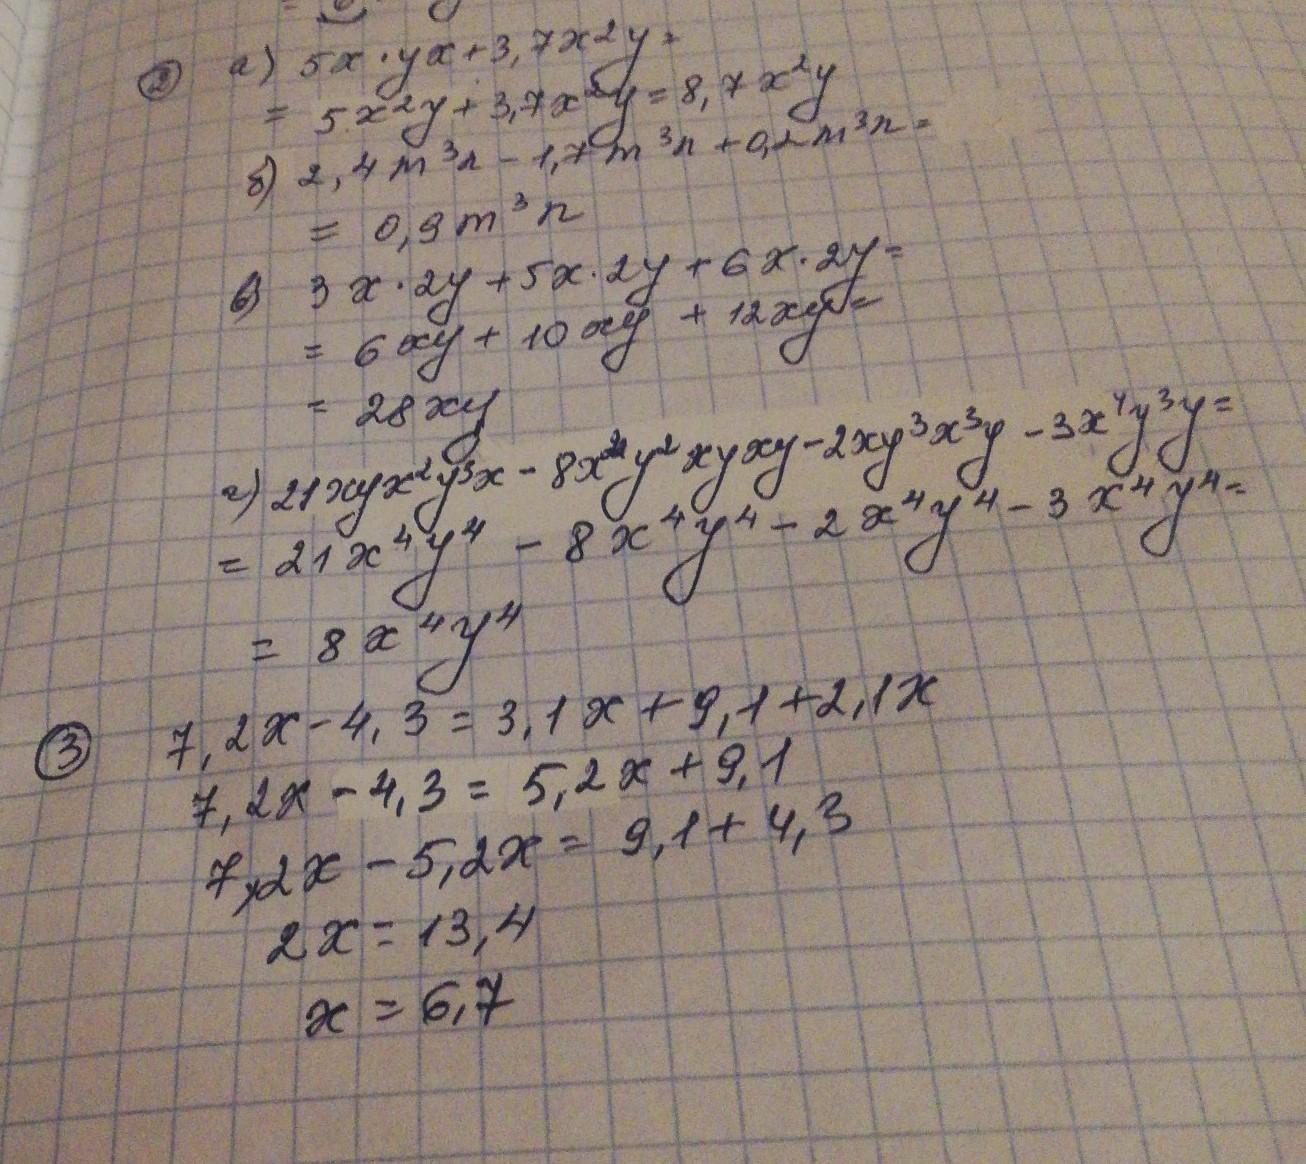 ② а) 5x·yx+3,7x2y=
= 5x²y+3,7x²y=8,7x²y
б) 2,4m³n-1,7m³n+0,2m³n=
= 0,9m³n
в) 3x·2y+5x·2y+6x·2y=
= 6xy+10xy+12xy=
= 28xy
г) 21xyx²y³x-8x²y²xyxy-2xy³x³y-3x⁴y³y=
= 21x⁴y⁴-8x⁴y⁴-2x⁴y⁴-3x⁴y⁴=
= 8x⁴y⁴
③ 7,2x-4,3=3,1x+9,1+2,1x
7,2x-4,3=5,2x+9,1
7,2x-5,2x=9,1+4,3
2x=13,4
x=6,7